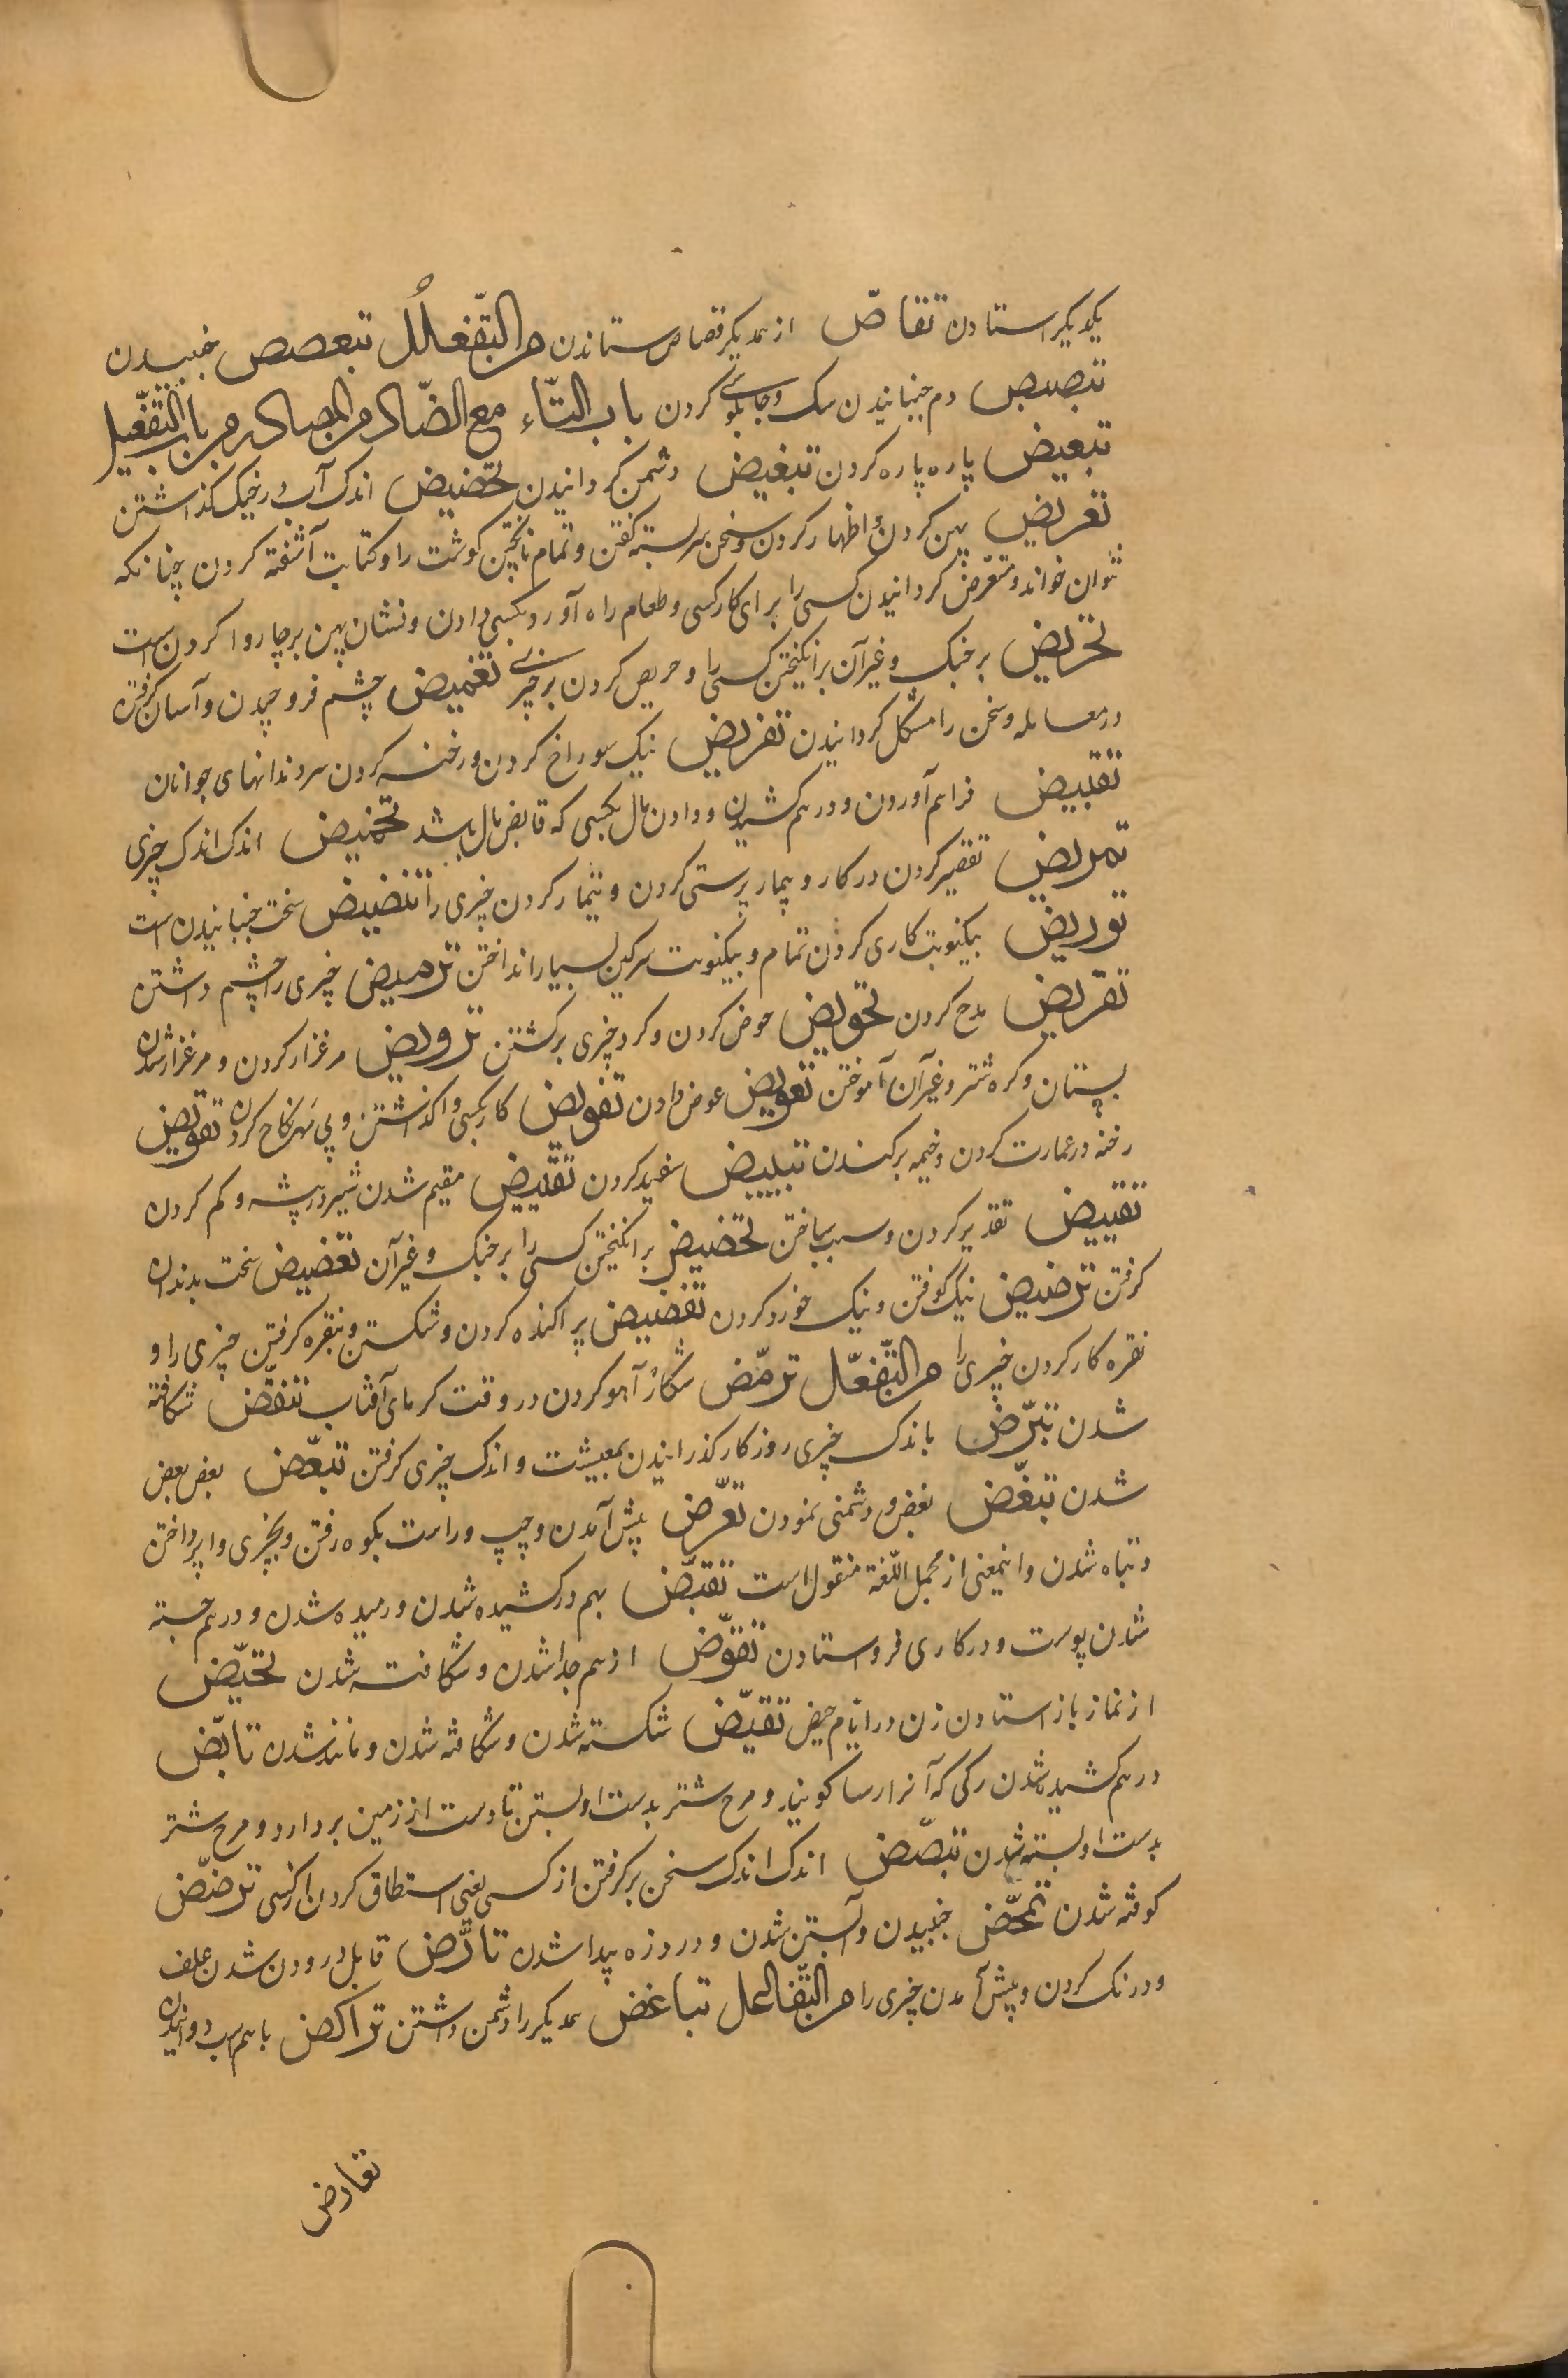 یکدیگر استادن تقاصّ از همدیگر قصاص ستاندن من التّفعلُل تبعصص خنبیدن
تبصبص دم جنبانیدن سک و چاپلوسی کردن باب التّاء مع الضّاد من المصادر من باب التّفعیل
تبعیض پاره پاره کردن تبغیض دشمن کردانیدن تحضیض اندک آب در خیک کذاشتن
تعریض پهن کردن و اظهار کردن و سخن سربسته کفتن و تمام ناپختن کوشت را و کتابت آشفته کردن چنانکه
نتوان خواند و متعرّض کردانیدن کسی را برای کار کسی و طعام راه آورد بکسی دادن و نشان پهن بر چاروا کردن است
تحریض بر جنک و غیر آن برانکیختن کسی را و حریص کردن بر چیزی تغمیض چشم فرو چیدن و آسان کرفتن
در معامله و سخن را مشکل کردانیدن تفریض نیک سوراخ کردن و رخنه کردن سر دندانهای جوانان
تقبیض فراهم آوردن و در هم کشیدن و دادن مال بکسی که قابض مال باشد تحمیض اندک اندک چیزی
تمریض تقصیر کردن در کار و بیمار پرستی کردن و تیمار کردن چیزی را تنضیض سخت جنبانیدن است
توریض بیکنوبت کاری کردن تمام و بیکنوبت سرکین بسیار انداختن ترمیض چیزی را چشم داشتن
تقریض مدح کردن تحویض حوض کردن و کرد چیزی برکشتن ترویض مرغزار کردن و مرغزار شدن
بستان و کره شتر و غیر آن آموختن تعویض عوض دادن تفویض کار بکسی واکذاشتن و بی مهر نکاح کردن تقویض
رخنه در عمارت کردن و خیمه برکندن تبییض سفید کردن تقییض مقیم شدن شیر در بیشه و کم کردن
تقییض تقدیر کردن و سبب ساختن تحضیض برانکیختن کسی را بر جنک و غیر آن تعضیض سخت بدندان
کرفتن ترضیض نیک کوفتن و نیک خورد کردن تفضیض پراکنده کردن و شکستن و بنقره کرفتن چیزی را و
نقره کار کردن چیزی را من التّفعّل ترمّض شکار آهو کردن در وقت کرمای آفتاب تنفّض شکافته
شدن تبرّض باندک چیزی روزکار کذرانیدن بمعیشت و اندک چیزی کرفتن تبعّض بعض بعض
شدن تبغّض بغض و دشمنی نمودن تعرّض پیش آمدن و چپ و راست بکوه رفتن و بچیزی واپرداختن
و تباه شدن و اینمعنی از مجمل اللّغة منقول است تقبّض بهم درکشیده شدن و رمیده شدن و در هم جسته
شدن پوست و در کاری فرو استادن تقوّض از هم جدا شدن و شکافته شدن تحیّض
از نماز باز استادن زن در ایّام حیض تقیّض شکسته شدن و شکافته شدن و مانند شدن تابّض
در هم کشیده شدن رکی که آنرا رسا کویند و مرح شتر بدست او بستن تا دست از زمین بردارد و مرح شتر
بدست او بسته شدن تبضّض اندک اندک سخن برکرفتن از کسی یعنی استطاق کردن از کسی ترضّض
کوفته شدن تمخّض جنبیدن و آبستن شدن و درد زه پیدا شدن تارّض قابل درودن شدن علف
و درنک کردن و پیش آمدن چیزی را من التّفاعل تباغض همدیکر را دشمن داشتن تراکض با هم اسب دوانیدن
تعارض